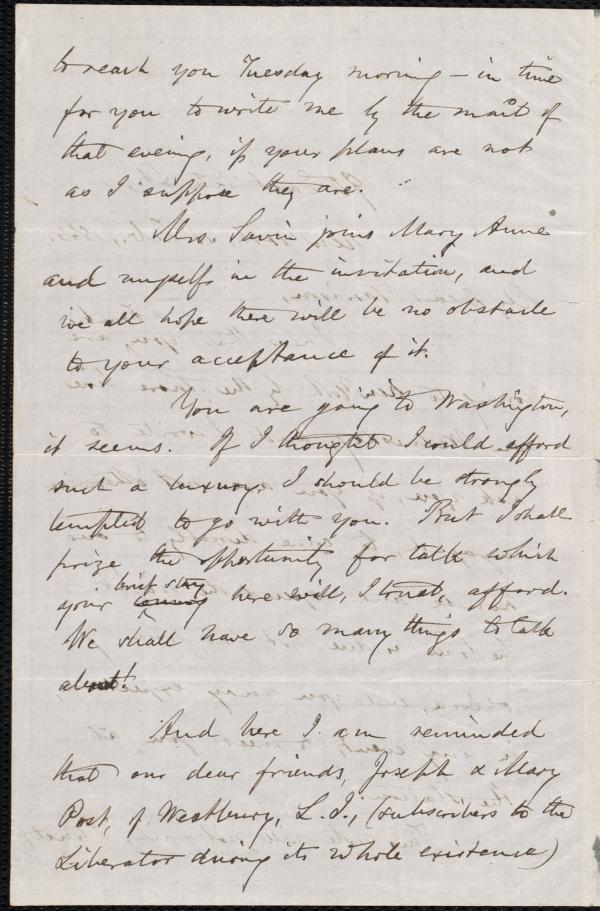 to reach you Tuesday morning — in time
for you to write me by the mail of
that evening, if your plans are not
as I suppose they are.
Mrs. Savin joins Mary Anne
and myself in the invitation, and
we all hope there will be no obstacle
to your acceptance of it.
You are going to Washington,
it seems. If I thought I could afford
such a luxury, I should be strongly
tempted to go with you. But I shall
prize the opportunity for talk which
brief stay
your here will, I trust, afford.
We shall have so many things to talk
about!
And here I am reminded
that our dear friends, Joseph & Mary
Post, of Westbury, L. I., (subscribers to the
Liberator during its whole existence)